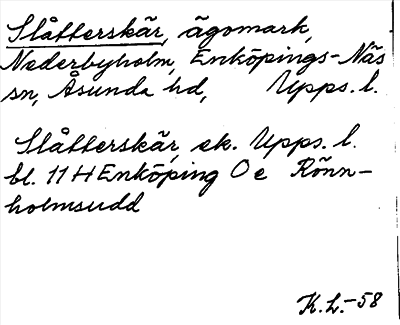 Slåtterskär, ägomark,
Nederbyholm, Enköpings-Näs
sn, Åsunda hd, Upps. l.
Slåtterskär, ek. Upps. l.
bl. 11 H Enköping O e Rönn-
holmsudd
K.L.-58